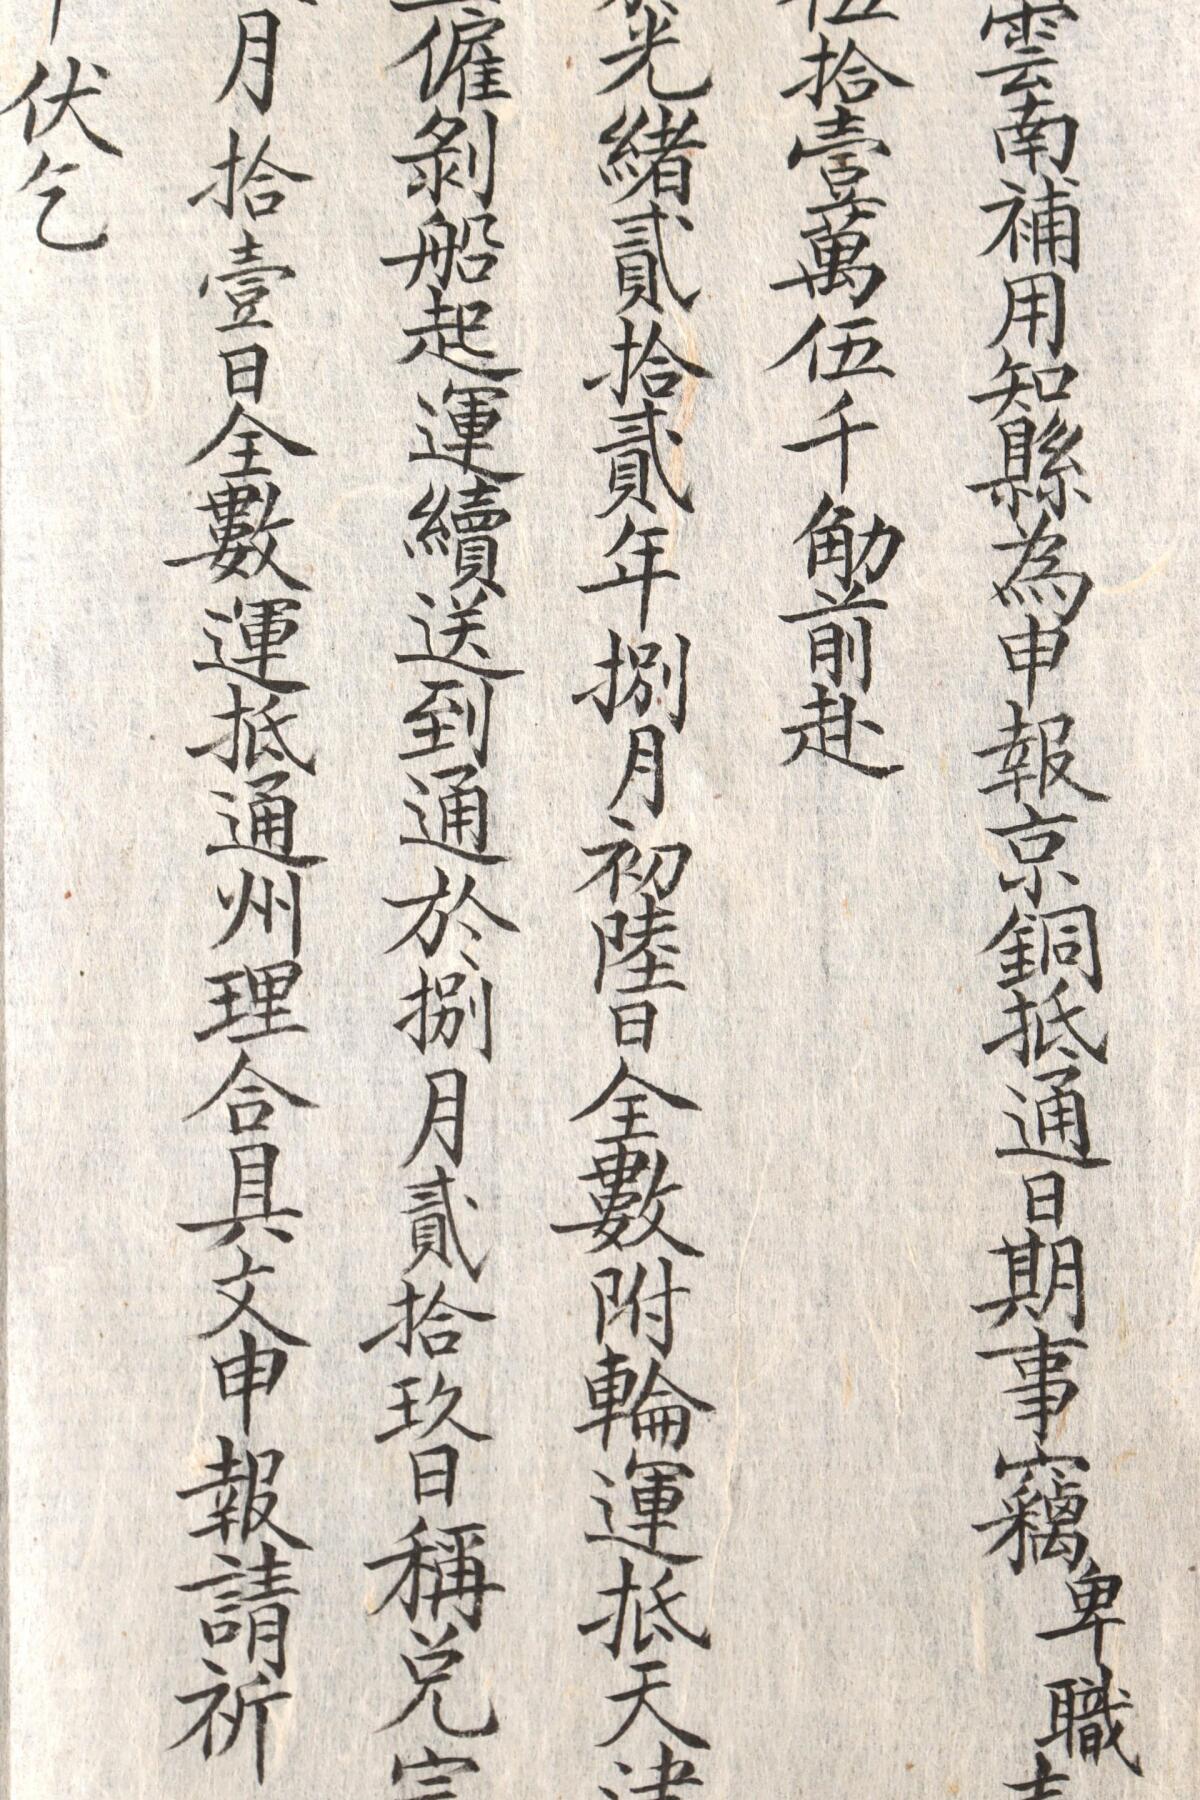 雲南補用知縣為申報京銅抵通日期事竊卑職
伍拾壹萬伍千觔前赴
光緒貳拾貳年捌月初陸日全數附輪運抵天津
僱剝船起運續送到通於捌月貳拾玖日稱兌完
月拾壹日全數運抵通州理合具文申報請祈
伏乞